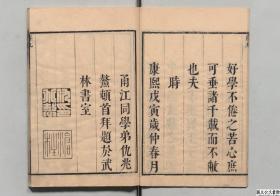 好學不倦之苦心庶
可垂諸千載而不敝
也夫
時
康熙戊寅歲仲春月
甬江同學弟仇兆
鰲頓首拜題於武
林書室